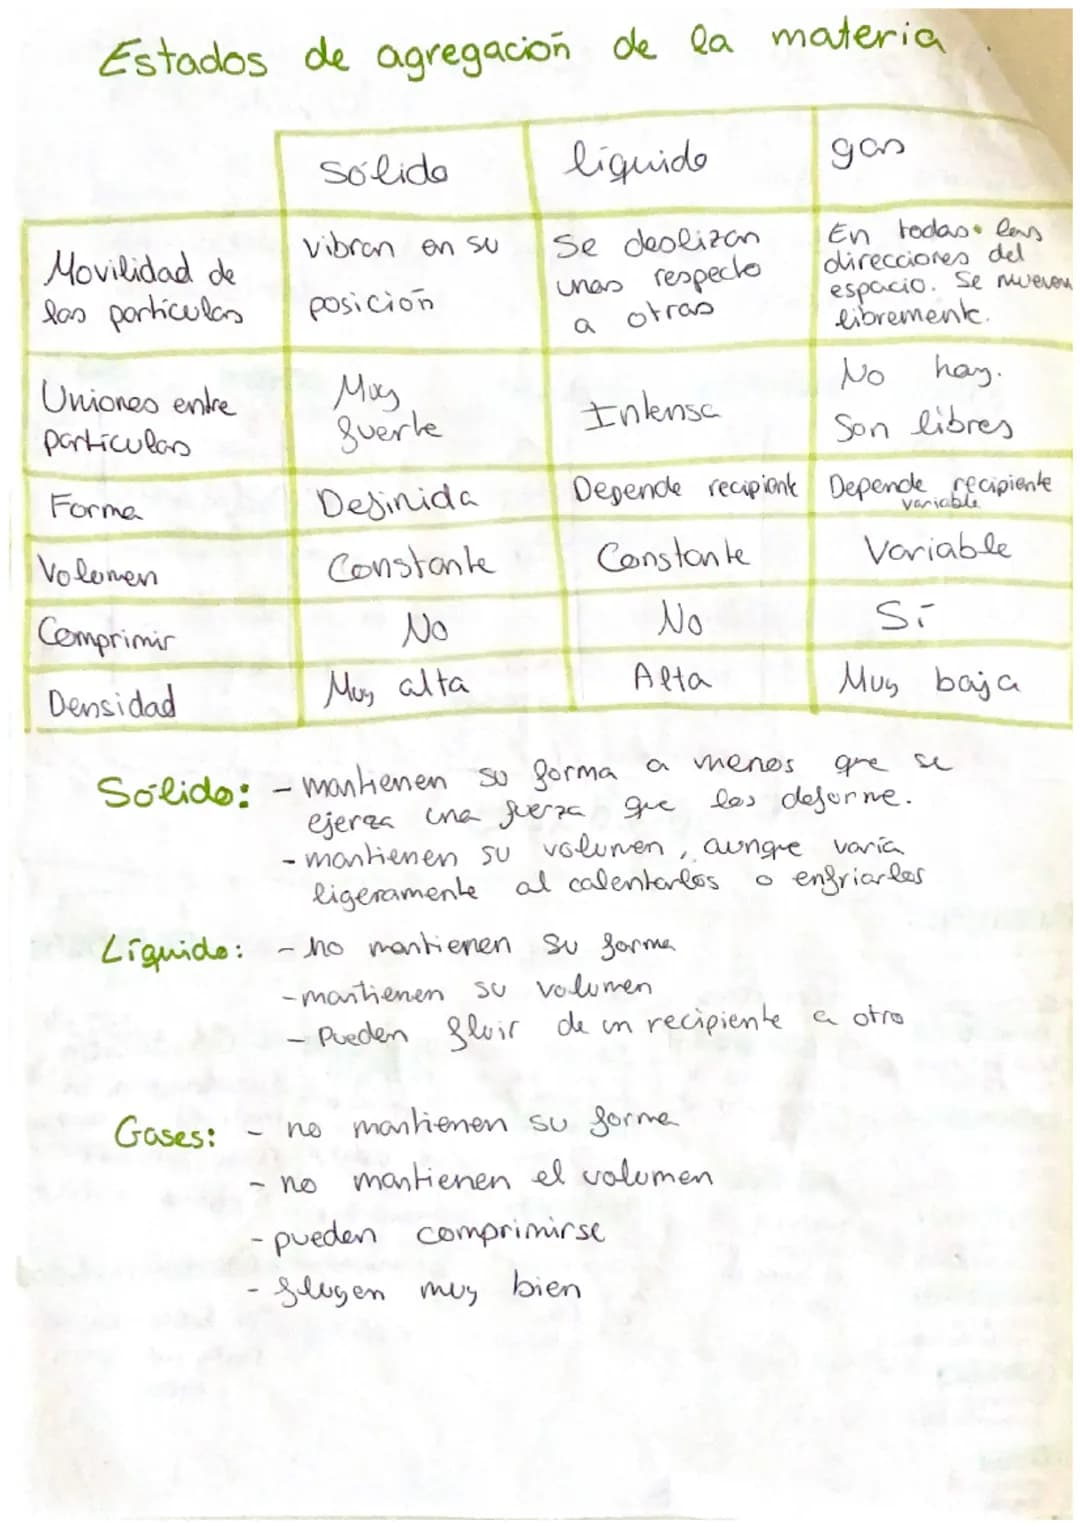 Estados de agregación de la materia.
sólido líquido gas
Movilidad de
las partículas
vibran en su
posición
Se deslizan
unas respecto
a otras
En todas las
direcciones del
espacio. Se mueven
libremente.
Uniones entre
partículas
Muy
fuerte
Intensa
No hay.
Son libres
Forma
Definida
Depende recipiente
Depende recipiente
variable
Volumen Constante Constante Variable
Comprimir No No Sí
Densidad Muy alta Alta Muy baja
Sólido: - mantienen su forma a menos que se
ejerza una fuerza que los deforme.
- mantienen su volumen, aunque varía
ligeramente al calentarlos o enfriarlos
Líquido: - no mantienen su forma
- mantienen su volumen
- Pueden fluir de un recipiente a otro
Gases: - no mantienen su forma
- no mantienen el volumen
- pueden comprimirse
- fluyen muy bien